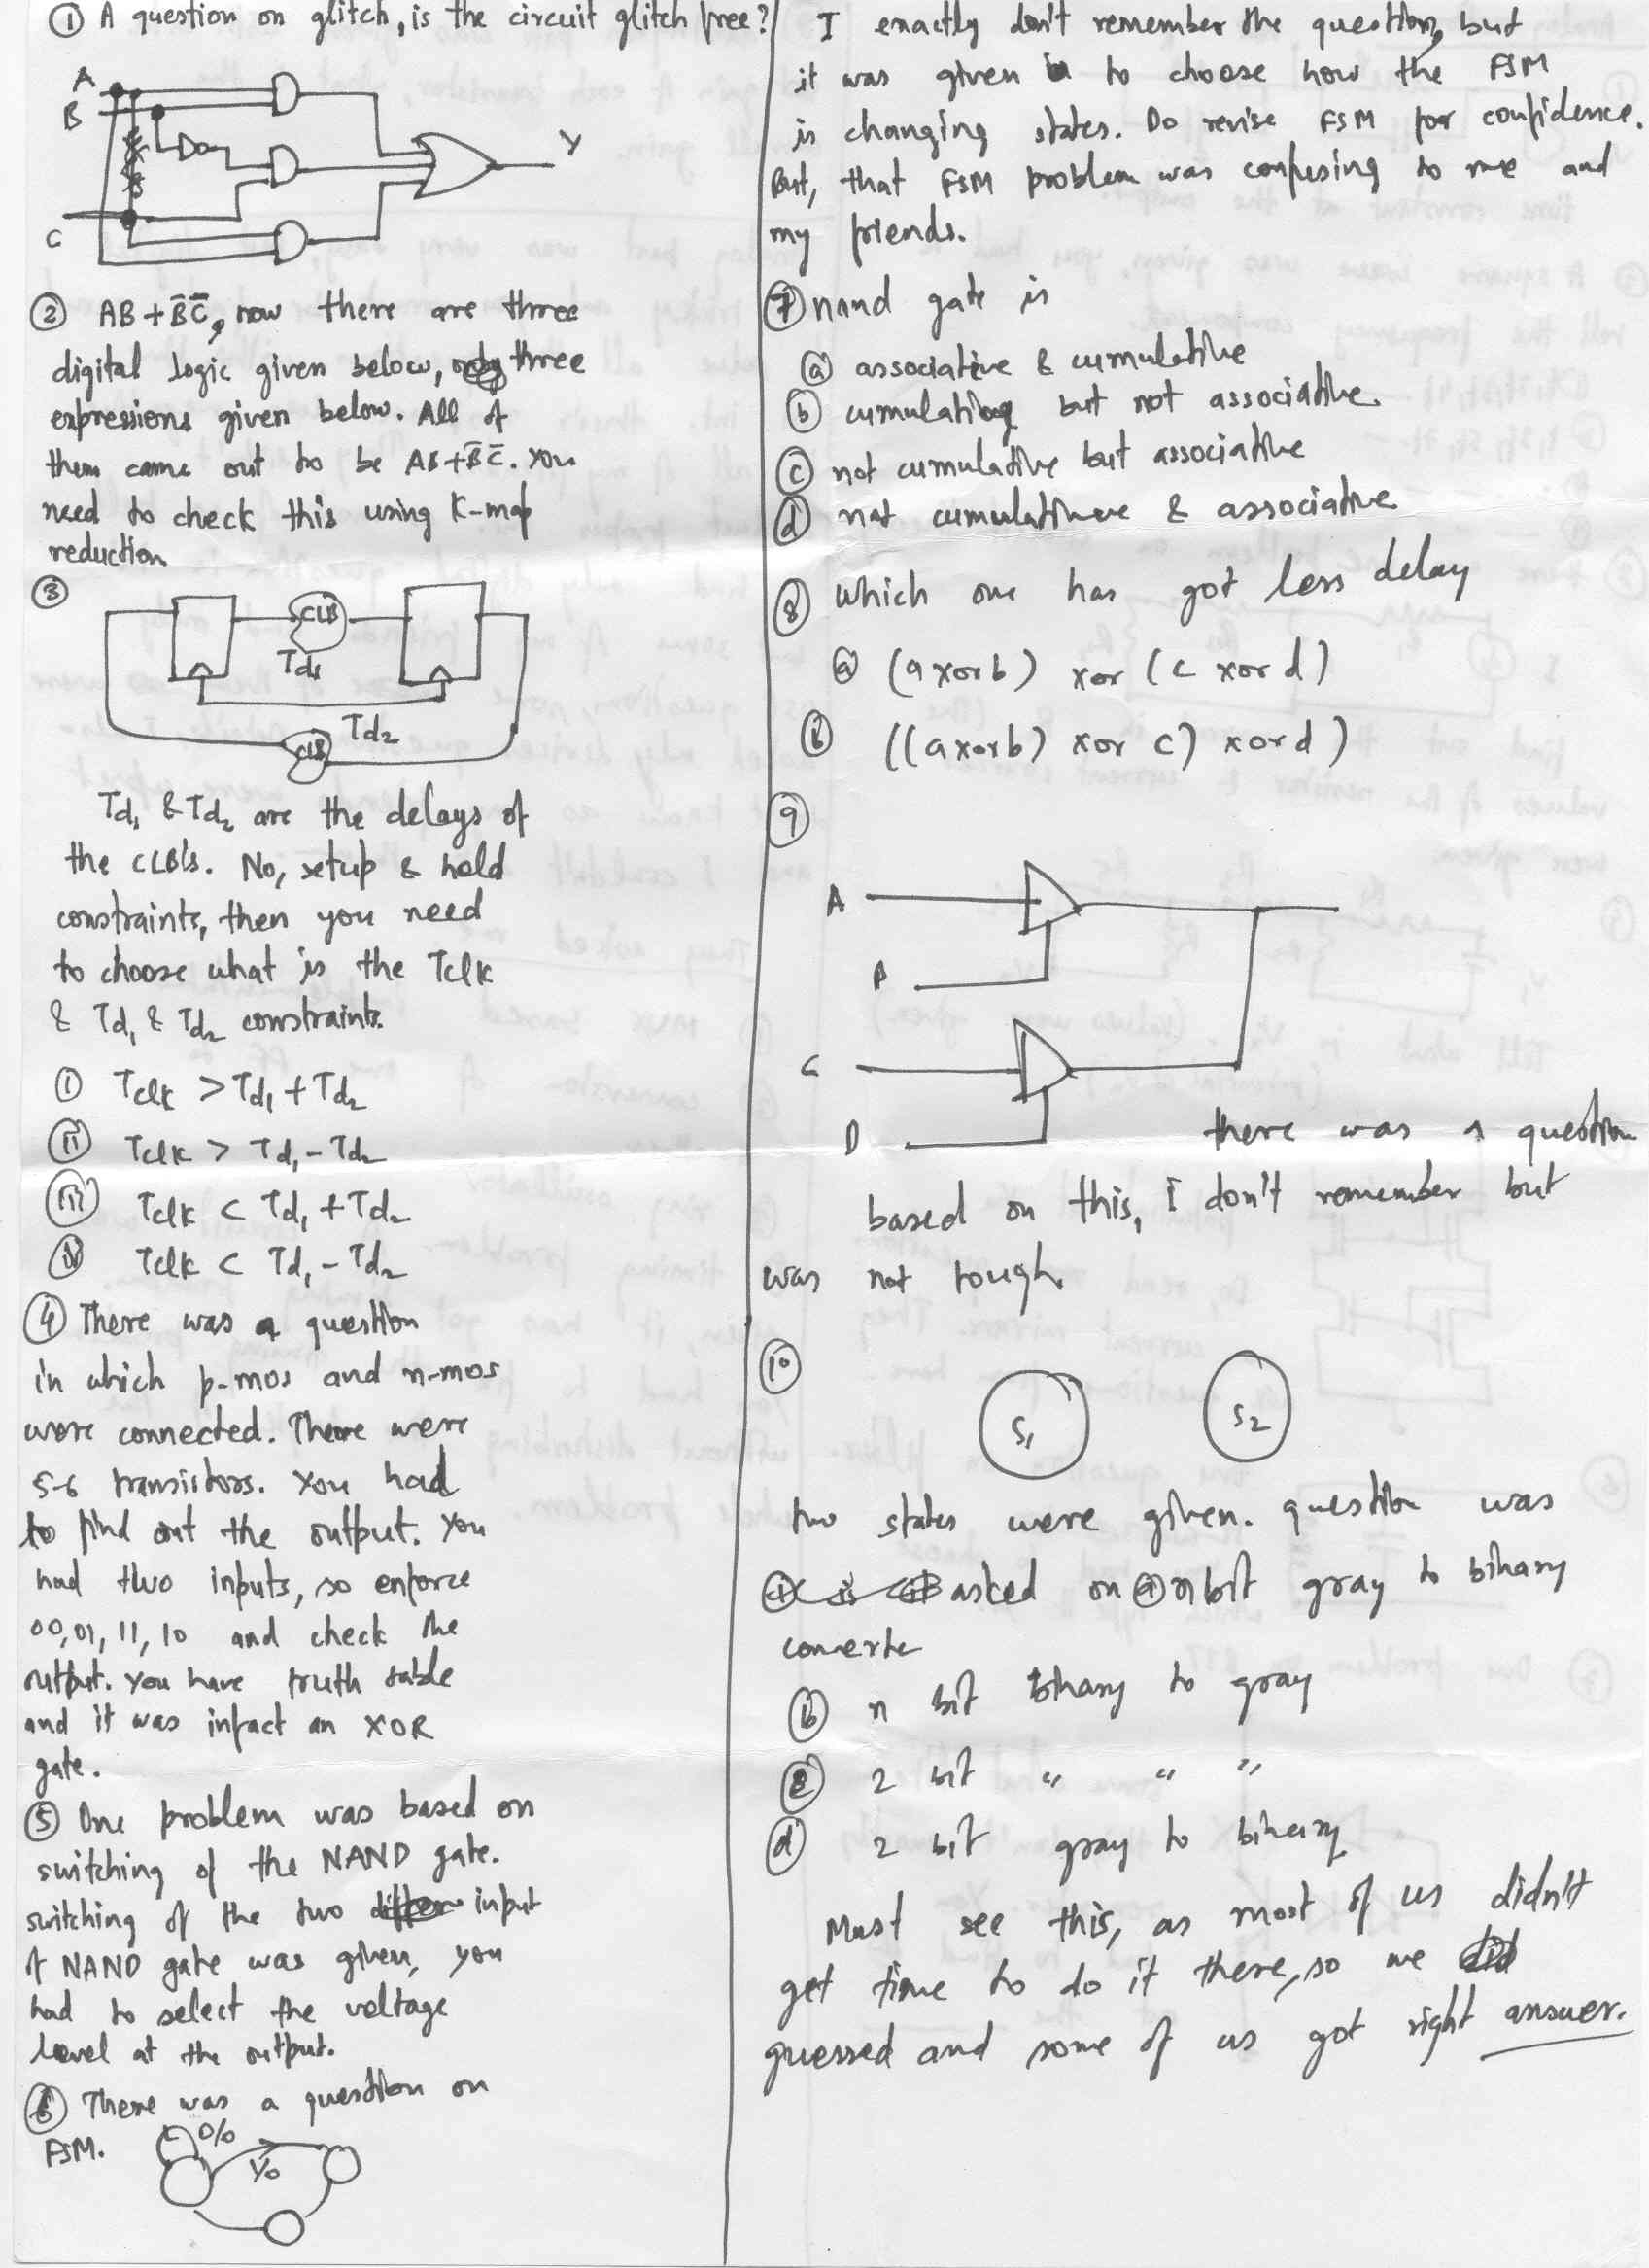 ① A question on glitch, is the circuit glitch free?
A
B
C
Y
② AB + B̅C̅, now there are three
digital logic given below, three
expressions given below. All of
them came out to be AB+B̅C̅. You
need to check this using K-map
reduction
③
CLB
Td1
Td2
CLB
Td1 & Td2 are the delays of
the CLB's. No, setup & hold
constraints, then you need
to choose what is the Tclk
& Td1 & Td2 constraints.
Ⓘ Tclk > Td1 + Td2
Ⓘⓘ Tclk > Td1 - Td2
Ⓘⓘⓘ Tclk < Td1 + Td2
ⓘⓥ Tclk < Td1 - Td2
④ There was a question
in which p-mos and n-mos
were connected. There were
5-6 transistors. You had
to find out the output. You
had two inputs, so enforce
00, 01, 11, 10 and check the
output. You have truth table
and it was infact an XOR
gate.
⑤ One problem was based on
switching of the NAND gate.
switching of the two input
of NAND gate was given, you
had to select the voltage
level at the output.
⑥ There was a question on
FSM.
0/0
1/0
I exactly don't remember the question, but
it was given to choose how the FSM
is changing states. Do revise FSM for confidence.
But, that FSM problem was confusing to me and
my friends.
⑦ nand gate is
ⓐ associative & cumulative
ⓑ cumulating but not associative.
ⓒ not cumulative but associative
ⓓ not cumulative & associative
⑧ Which one has got less delay
ⓐ (a xor b) xor (c xor d)
ⓑ ((a xor b) xor c) xor d)
⑨
A
B
C
D
there was a question
based on this, I don't remember but
was not tough.
⑩
S1
S2
two states were given. question was
asked on ⓐ n bit gray to binary
converte
ⓑ n bit binary to gray
ⓒ 2 bit " " "
ⓓ 2 bit gray to binary
Must see this, as most of us didn't
get time to do it there, so we
guessed and some of us got right answer.